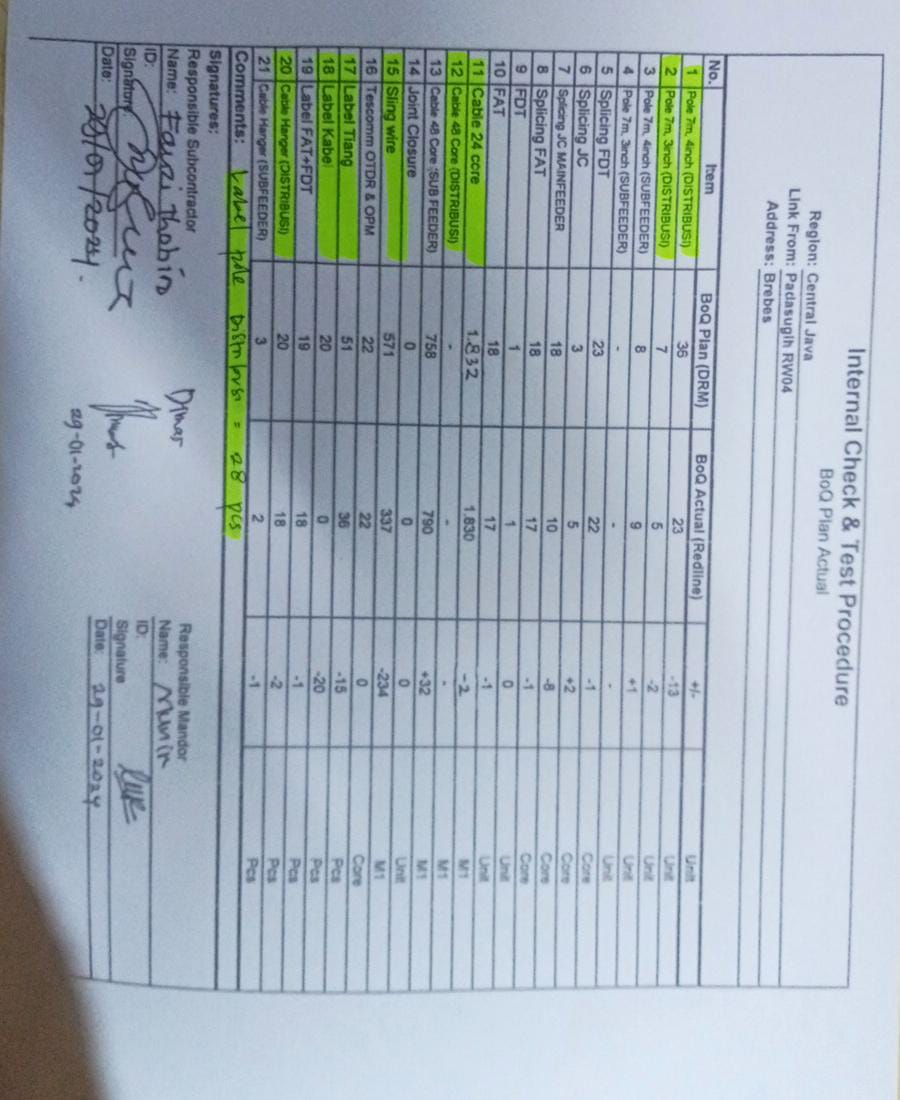 Internal Check & Test Procedure
BoQ Plan Actual
Region: Central Java
Link From: Padasugih RW04
Address: Brebes
No. Item BoQ Plan (DRM) BoQ Actual (Redline) +/-
1 Pole 7m, 4inch (DISTRIBUSI) 36 23 -13 Unit
2 Pole 7m, 3inch (DISTRIBUSI) 7 5 -2 Unit
3 Pole 7m, 4inch (SUBFEEDER) 8 9 +1 Unit
4 Pole 7m, 3inch (SUBFEEDER) - - - Unit
5 Splicing FDT 23 22 -1 Core
6 Splicing JC 3 5 +2 Core
7 Splicing JC MAINFEEDER 18 10 -8 Core
8 Splicing FAT 18 17 -1 Core
9 FDT 1 1 0 Unit
10 FAT 18 17 -1 Unit
11 Cable 24 core 1.832 1.830 -2 M1
12 Cable 48 Core (DISTRIBUSI) - - - M1
13 Cable 48 Core (SUB FEEDER) 758 790 +32 M1
14 Joint Closure 0 0 0 Unit
15 Sling wire 571 337 -234 M1
16 Tescomm OTDR & OPM 22 22 0 Core
17 Label Tiang 51 36 -15 Pcs
18 Label Kabel 20 0 -20 Pcs
19 Label FAT+FDT 19 18 -1 Pcs
20 Cable Hanger (DISTRIBUSI) 20 18 -2 Pcs
21 Cable Hanger (SUBFEEDER) 3 2 -1 Pcs
Comments: Label pole Distribusi = 28 pcs
Signatures:
Responsible Subcontractor
Name: Fauzi Thobin
ID:
Signature:
Date: 29/01/2024.
Dimas
29-01-2024
Responsible Mandor
Name: Munir
ID:
Signature
Date: 29-01-2024